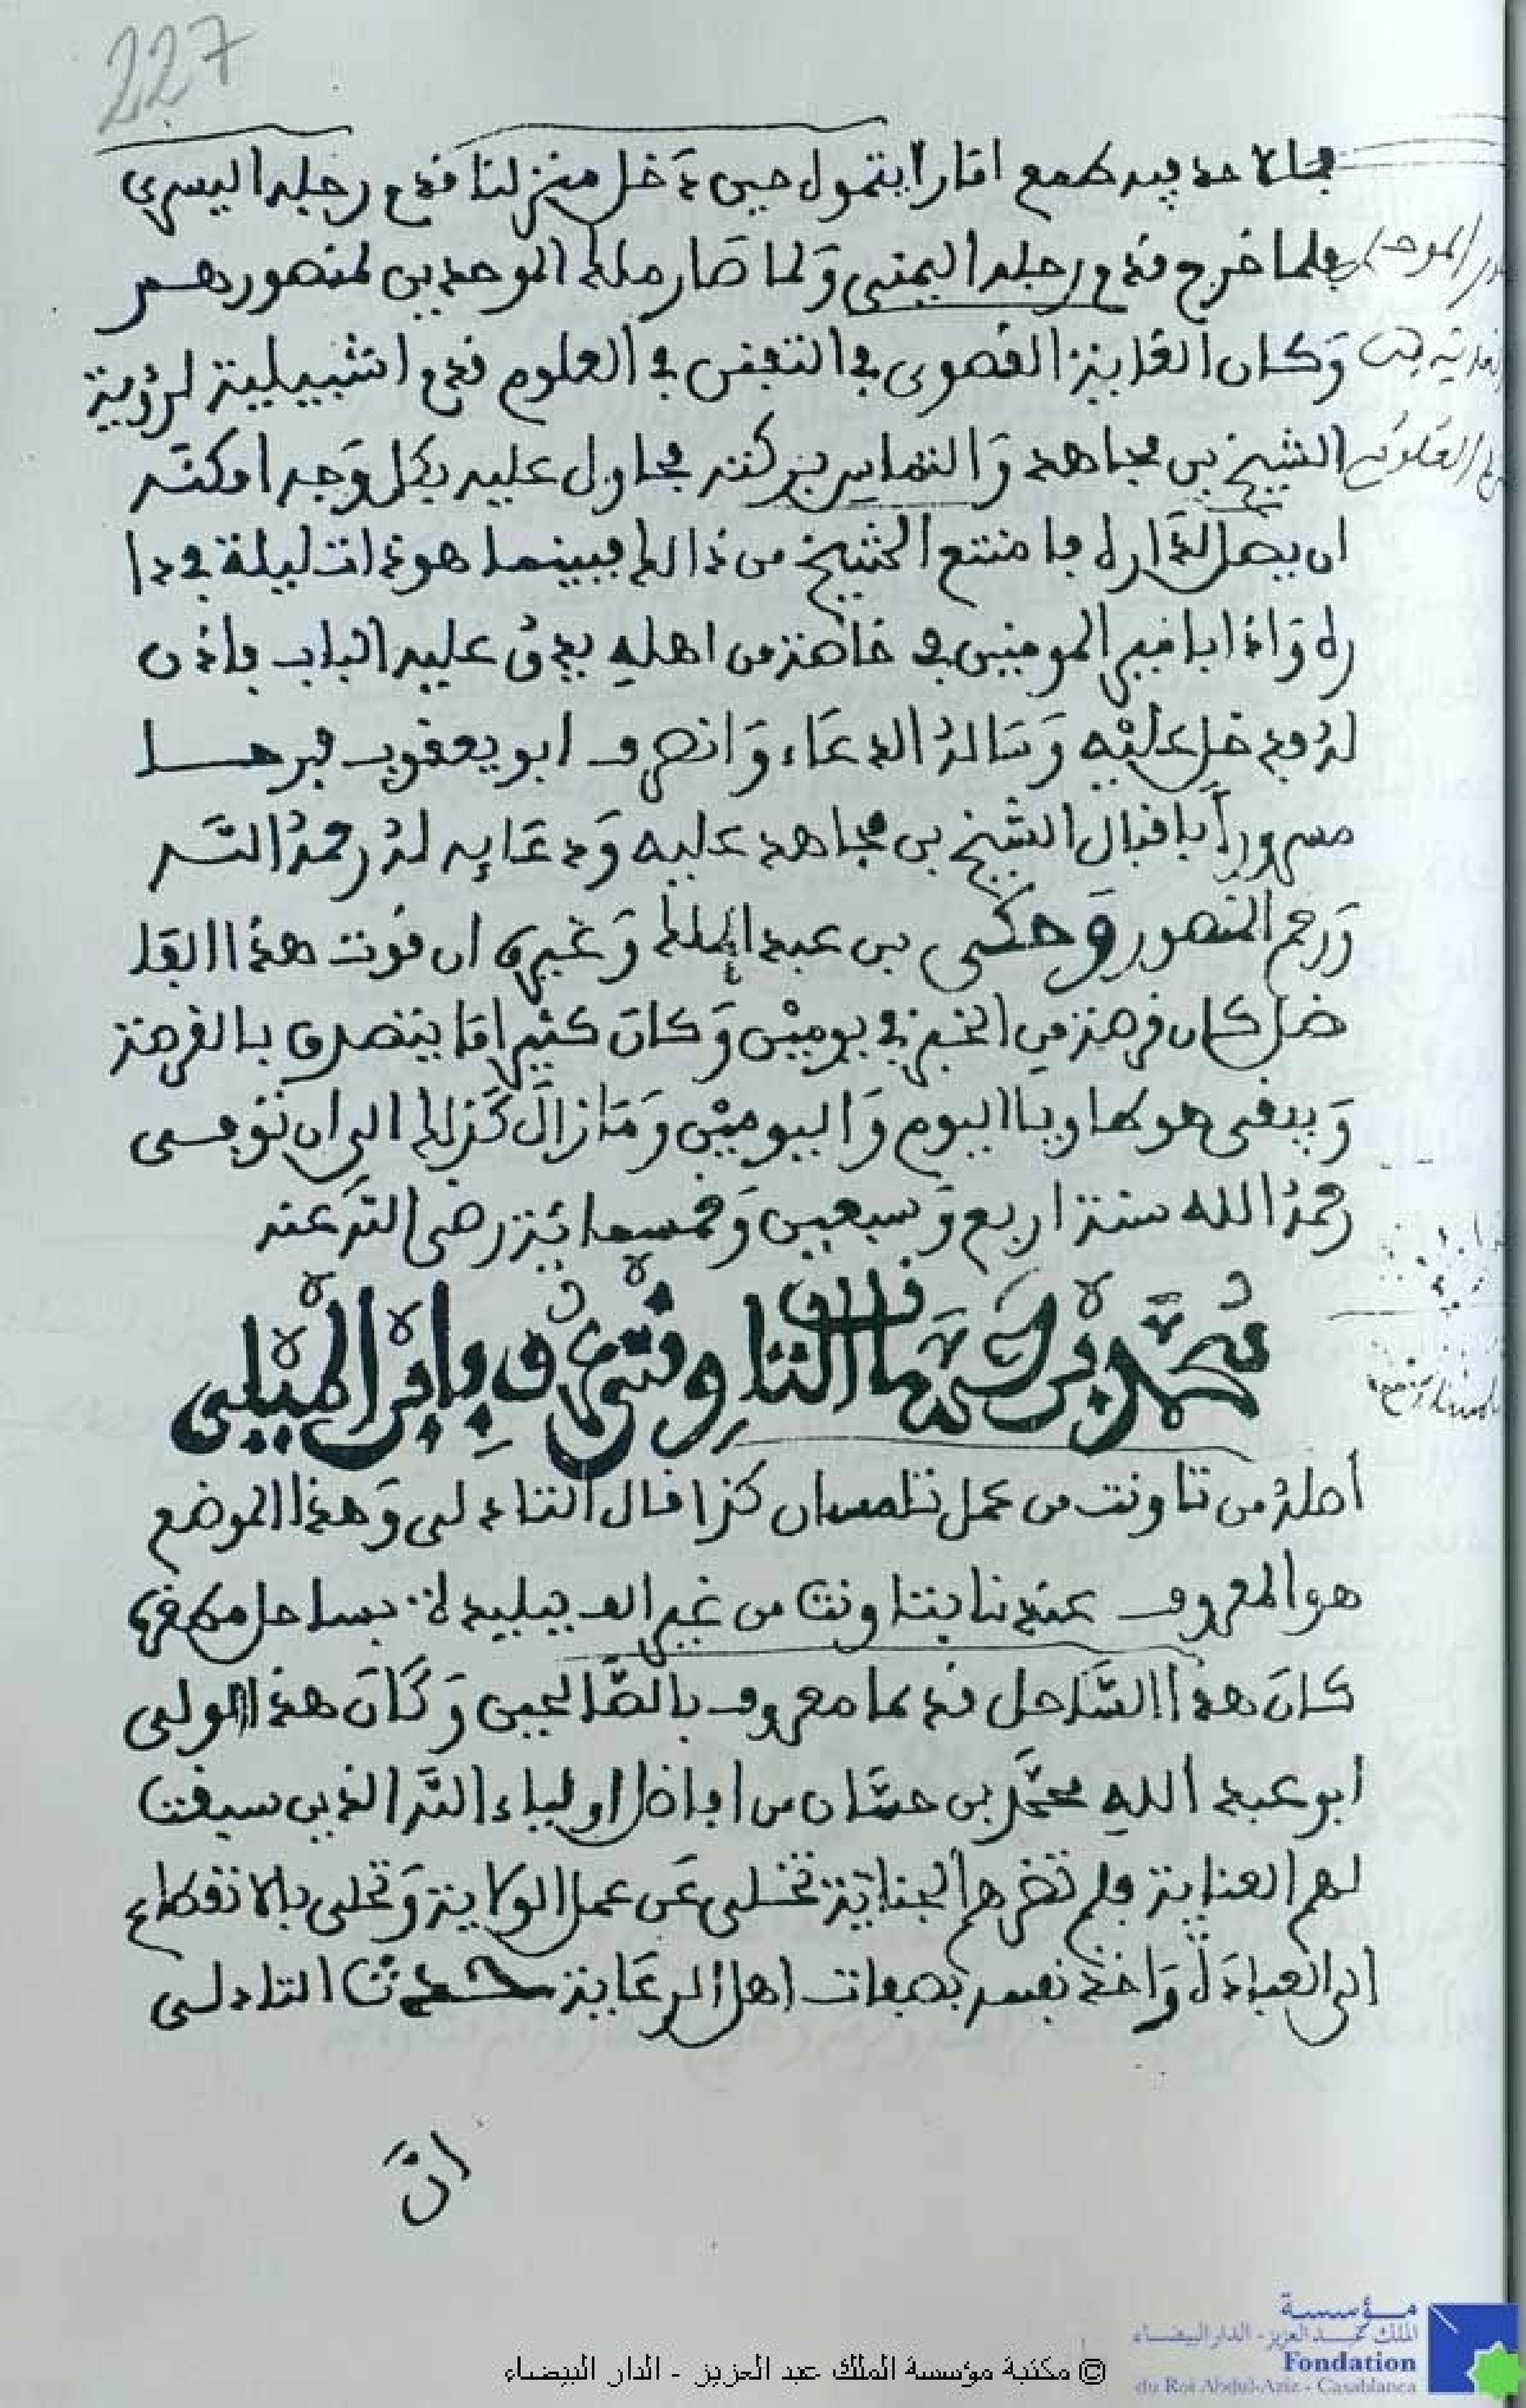 227
فما لاحد فيه طمع اما را يتمول حين دخل منزلنا قدم رجله اليسرى
فلما خرج قدم رجله اليمنى وَلما صَار ملك الموحدين لمنصورهم
وَكان الغاية القصوى في التفنن في العلوم قدم اشبيلية لرؤية
الشيخ بن مجاهد وَالتماس بركته فحاول عليه بكل وَجه امكنه
ان يصل لدَاره فامتنع الشيخ من ذالك فبينما هو ذات ليلة في دا
ره وَاذا بامير المومنين في خاصة من اهله يدق عليه الباب فاذن
لهُ فدخل عليْه وَسَالهُ الدعَاء وَانصرف ابو يعقوب فرحا
مسروراً باقبال الشيخ بن مجاهد عليه وَدعَايه لهُ رحمهُ الله
وَرحم المنصور وَحكى بن عبد الملك وَغيره ان قوت هذا الفا
ضل كان قرصة من الخبز في يوميْن وَكانَ كثيرا مَا يتصدق بالقرصة
وَيبقى هو طاويا اليوم وَاليوميْن وَمَا زالَ كَذلك الى ان توفي
رحمهُ الله سنة اربع وَسبعين وَخمسمائة رضي الله عنه
أصلهُ من تاونت من عمل تلمسان كذا قال التادلى وَهذا الموضع
هو المعروف عندنا بتاونت من غير الف بيليدة بساحل مطغرة
كانَ هذا السَّاحل قديما معروف بالصَّالحين وَكَانَ هذا الولى
ابو عبد الله محمَّد بن حسَّان من افاضل اولياء الله الذين سبقت
لهم العناية فلم تضرهم الجناية تخلى عَن عمل الولاية وَتحلى بالانقطاع
الى العبادة وَاخذ نفسه بصفات اهل الرعَاية حدثنا التادلى
انَّ
مؤسسة
الملك عبد العزيز - الدار البيضاء
Fondation
du Roi Abdul-Aziz - Casablanca
© مكتبة مؤسسة الملك عبد العزيز - الدار البيضاء